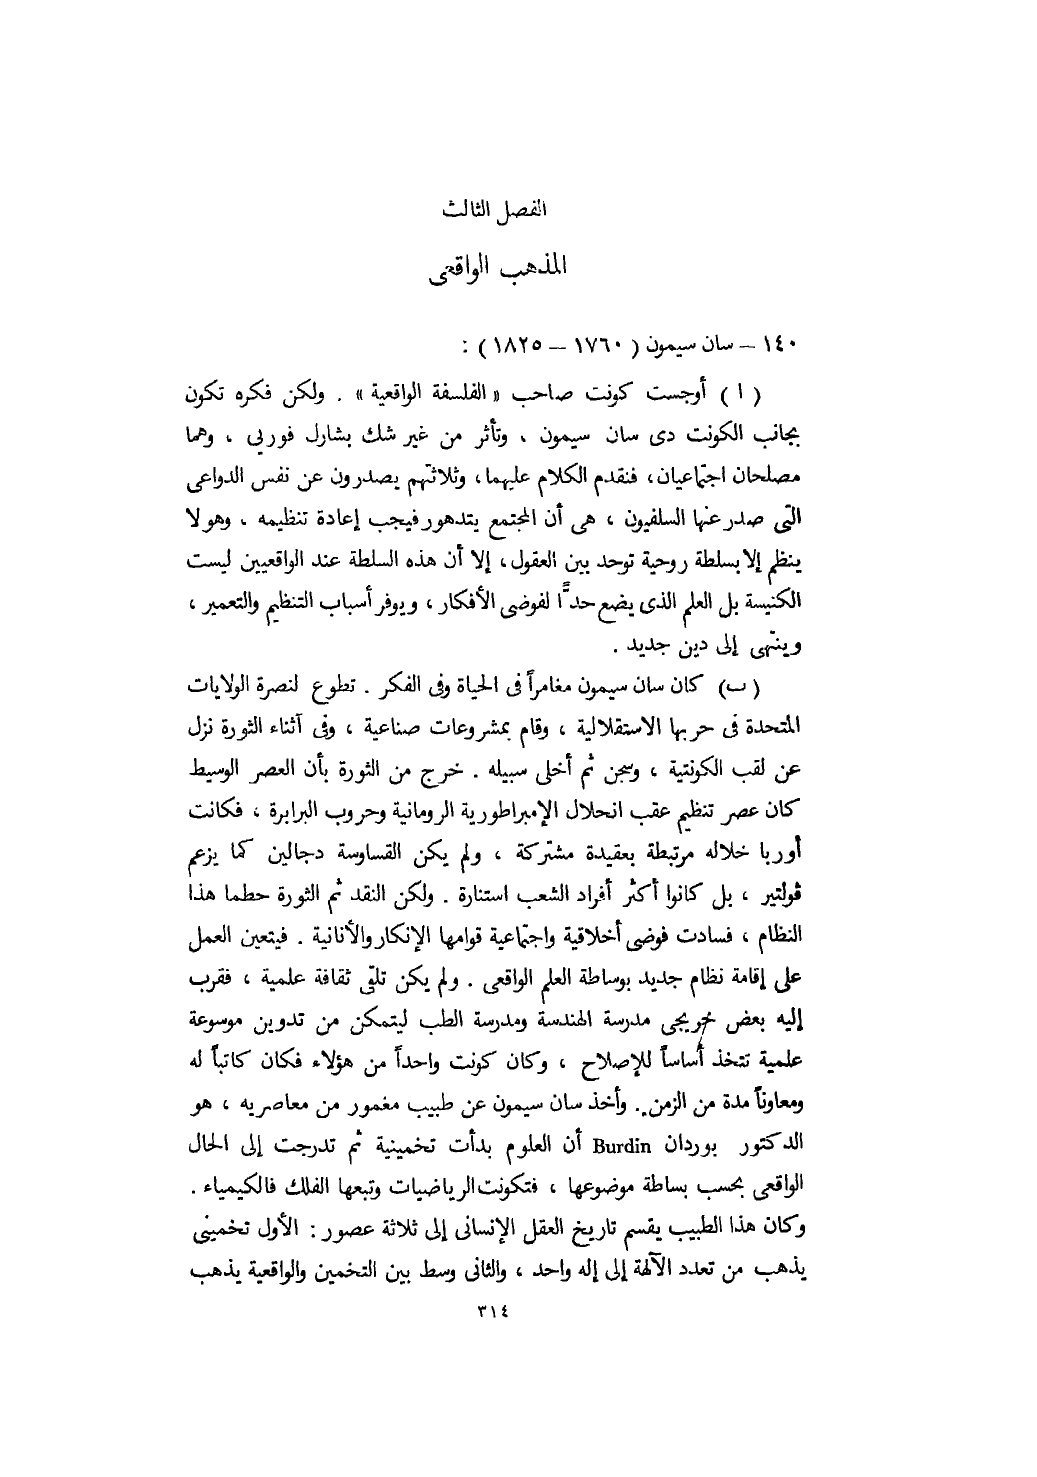 الفصل الثالث
المذهب الواقعى
١٤٠ – سان سيمون ( ١٧٦٠ – ١٨٢٥ ) :
( ا ) أوجست كونت صاحب « الفلسفة الواقعية » . ولكن فكره تكون
بجانب الكونت دى سان سيمون ، وتأثر من غير شك بشارل فوربى ، وهما
مصلحان اجتماعيان ، فنقدم الكلام عليهما ، وثلاثتهم يصدرون عن نفس الدواعى
التى صدر عنها السلفيون ، هى أن المجتمع يتدهور فيجب إعادة تنظيمه . وهو لا
ينظم إلا بسلطة روحية توحد بين العقول ، إلا أن هذه السلطة عند الواقعيين ليست
الكنيسة بل العلم الذى يضع حدًّا لفوضى الأفكار ، ويوفر أسباب التنظيم والتعمير ،
وينتهى إلى دين جديد .
( ب ) كان سان سيمون مغامراً فى الحياة وفى الفكر . تطوع لنصرة الولايات
المتحدة فى حربها الاستقلالية ، وقام بمشروعات صناعية ، وفى آثناء الثورة نزل
عن لقب الكونتية ، وسجن ثم أخلى سبيله . خرج من الثورة بأن العصر الوسيط
كان عصر تنظيم عقب انحلال الإمبراطورية الرومانية وحروب البرابرة ، فكانت
أوربا خلاله مرتبطة بعقيدة مشتركة ، ولم يكن القساوسة دجالين كما يزعم
ڤولتير ، بل كانوا أكثر أفراد الشعب استنارة . ولكن النقد ثم الثورة حطما هذا
النظام ، فسادت فوضى أخلاقية واجتماعية قوامها الإنكار والأنانية . فيتعين العمل
على إقامة نظام جديد بوساطة العلم الواقعى . ولم يكن تلقى ثقافة علمية ، فقرب
إليه بعض خريجى مدرسة الهندسة ومدرسة الطب ليتمكن من تدوين موسوعة
علمية تتخذ أساساً للإصلاح ، وكان كونت واحداً من هؤلاء فكان كاتباً له
ومعاوناً مدة من الزمن . وأخذ سان سيمون عن طبيب مغمور من معاصريه ، هو
الدكتور بوردان Burdin أن العلوم بدأت تخمينية ثم تدرجت إلى الحال
الواقعى بحسب بساطة موضوعها ، فتكونت الرياضيات وتبعها الفلك فالكيمياء .
وكان هذا الطبيب يقسم تاريخ العقل الإنسانى إلى ثلاثة عصور : الأول تخمينى
يذهب من تعدد الآلهة إلى إله واحد ، والثانى وسط بين التخمين والواقعية يذهب
٣١٤